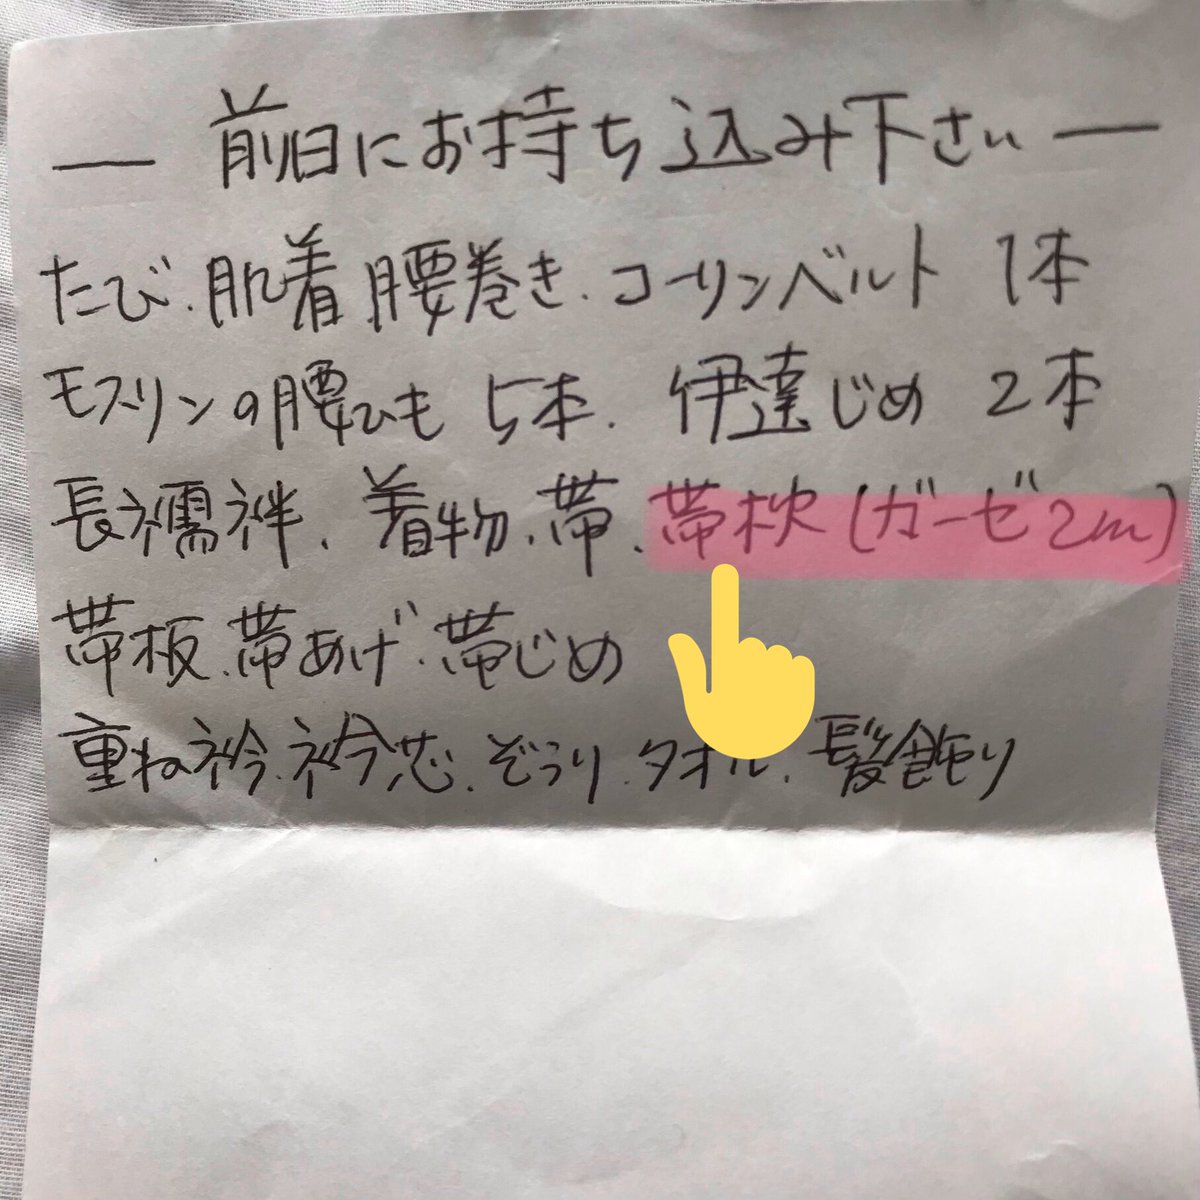 ― 前日にお持ち込み下さい ―
たび.肌着 腰巻き.コーリンベルト 1本
モスリンの腰ひも 5本. 伊達じめ 2本
長襦袢、着物、帯、帯枕(ガーゼ2m)
帯板.帯あげ.帯じめ
重ね衿.衿芯.ぞうり.タオル、髪飾り